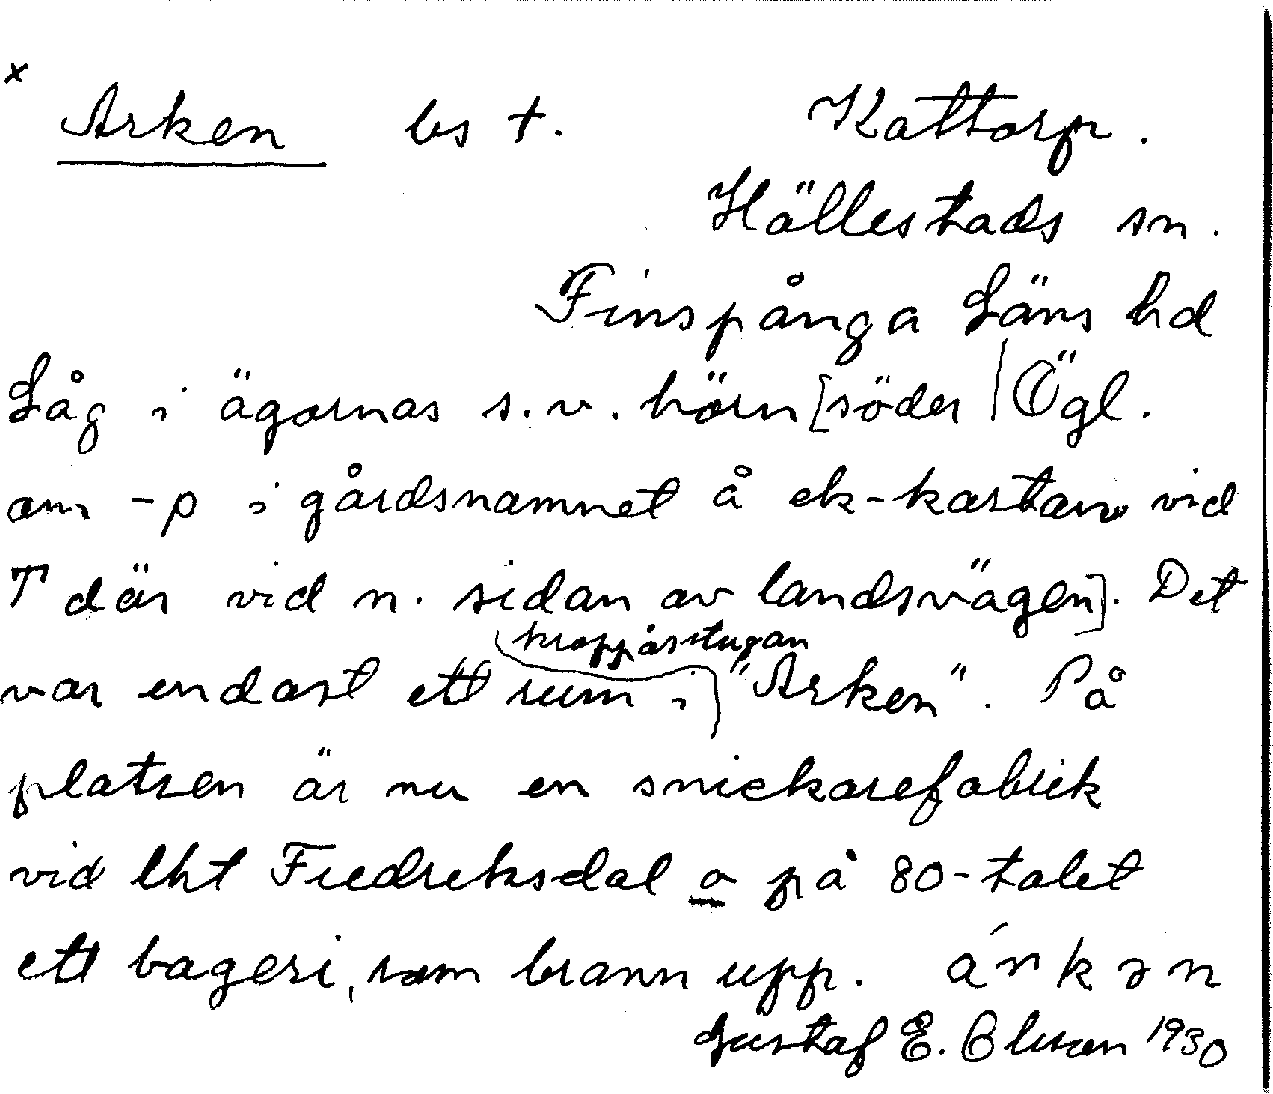 x
Arken bs t. Kattorp.
Hällestads sn.
Finspånga Läns hd
Låg i ägornas s.v. hörn [söder | Ögl.
om -p i gårdsnamnet å ek-kartan vid
T där vid n. sidan av landsvägen]. Det
kroppåsstugan
var endast ett rum i "Arken". På
platsen är nu en snickarefabrik
vid lht Fredriksdal o på 80-talet
ett bageri, som brann upp. árkən
Gustaf E. Olsson 1930